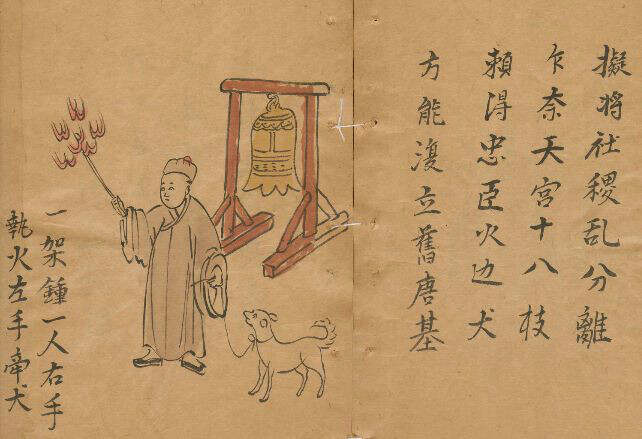 擬將社稷乱分離
乍奈天宮十八枝
賴淂忠臣火边犬
方能澓立舊唐基
一架鍾一人右手
執火左手牵犬